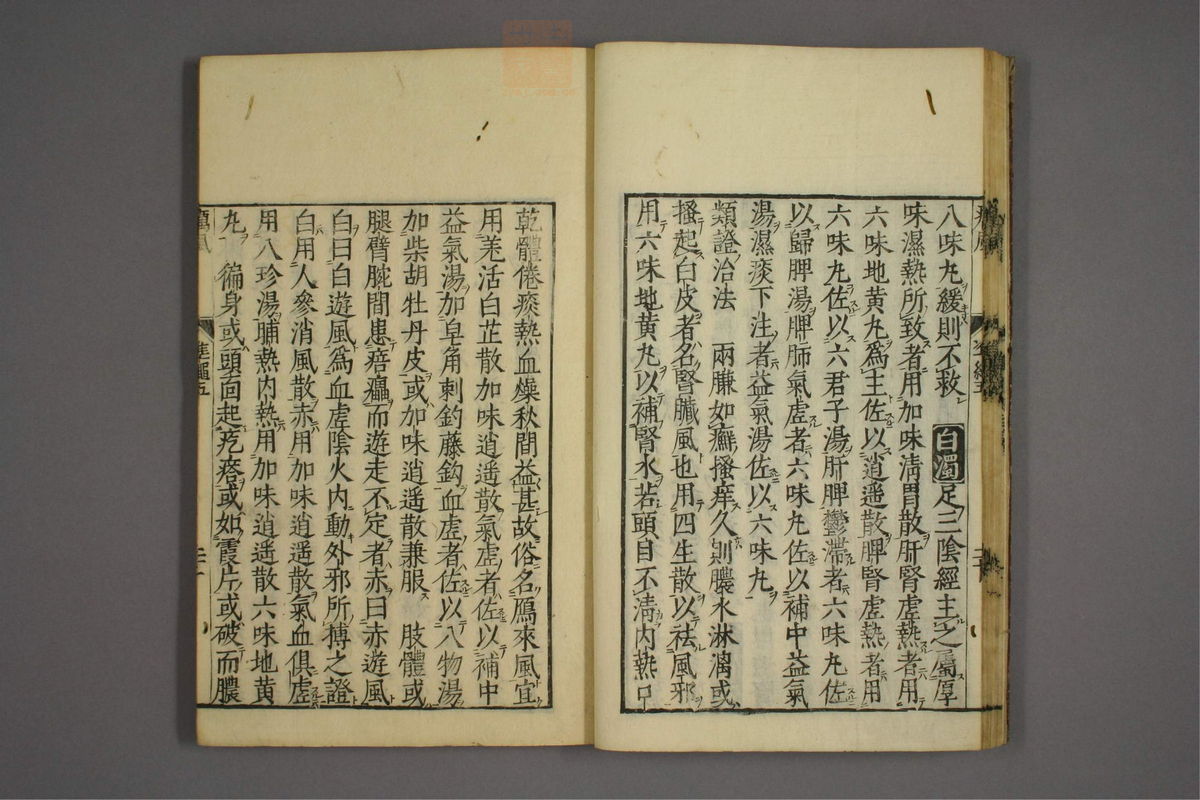 八味丸緩則不救 白濁 足三陰經主之屬厚
味濕熱所致者用加味淸胃散肝腎虛熱者用
六味地黃丸爲主佐以逍遙散脾腎虛熱者用
六味丸佐以六君子湯肝脾鬱滯者六味丸佐
以歸脾湯脾肺氣虛者六味丸佐以補中益氣
湯濕痰下注者益氣湯佐以六味丸
類證治法 兩臁如癬搔痒久則膿水淋漓或
搔起白皮者名腎臟風也用四生散以祛風邪
用六味地黃丸以補腎水若頭目不淸内熱口
乾體倦痰熱血燥秋間益甚故俗名鴈來風宜
用羌活白芷散加味逍遙散氣虛者佐以補中
益氣湯加皂角刺釣藤鈎血虛者佐以八物湯
加柴胡牡丹皮或加味逍遙散兼服 肢體或
腿臂腕間患㾦癗而遊走不定者赤曰赤遊風
白曰白遊風爲血虛陰火内動外邪所搏之證
白用人參消風散赤用加味逍遙散氣血俱虛
用八珍湯晡熱内熱用加味逍遙散六味地黃
丸 徧身或頭面起疙瘩或如霞片或破而膿
準繩五